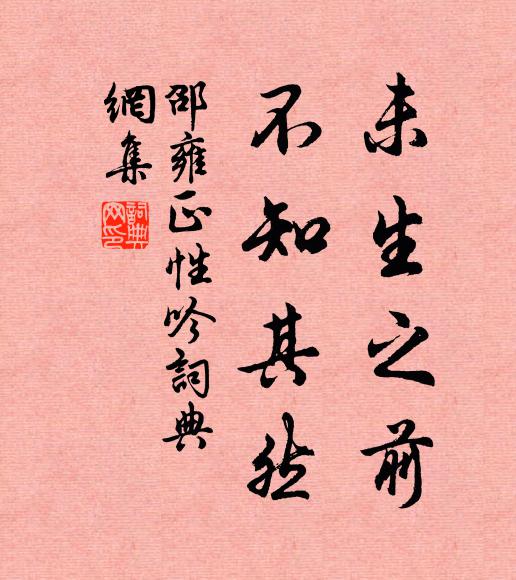 未生之前
不知其然
邵雍正性吟詞典
網集
詞典
网印